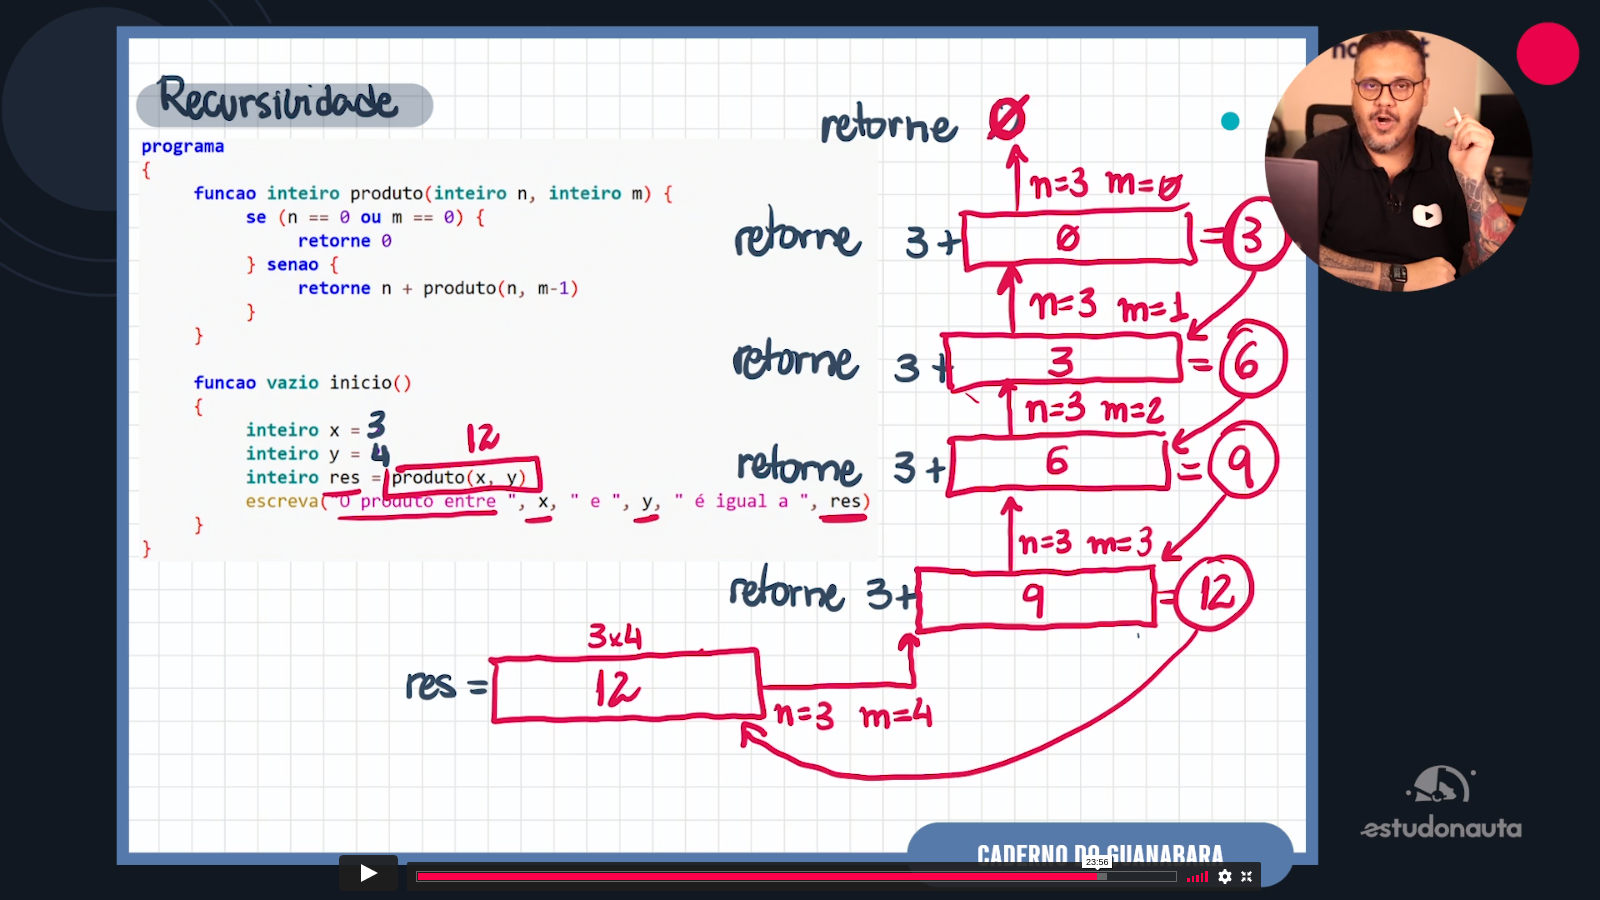 Recursividade
programa
{
funcao inteiro produto(inteiro n, inteiro m) {
se (n == 0 ou m == 0) {
retorne 0
} senao {
retorne n + produto(n, m-1)
}
}
funcao vazio inicio()
{
inteiro x = 3
inteiro y = 4
12
inteiro res = produto(x, y)
escreva("O produto entre ", x, " e ", y, " é igual a ", res)
}
}
retorne 0
n=3 m=0
retorne 3+ 0 = 3
n=3 m=1
retorne 3+ 3 = 6
n=3 m=2
retorne 3+ 6 = 9
n=3 m=3
retorne 3+ 9 = 12
3x4
res = 12
n=3 m=4
estudonauta
CADERNO DO GUANABARA
23:56